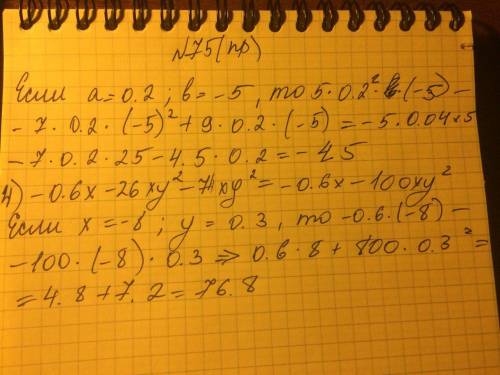 №75(пр)
Если a=0.2; b=-5, то 5·0.2²·(-5)-
-7·0.2·(-5)²+9·0.2·(-5)=-5·0.04×5
-7·0.2·25-4.5·0.2=-45
4) -0.6x-26xy²-74xy²=-0.6x-100xy²
Если x=-8; y=0.3, то -0.6·(-8)-
-100·(-8)·0.3 => 0.6·8+800·0.3²=
=4.8+7.2=76.8